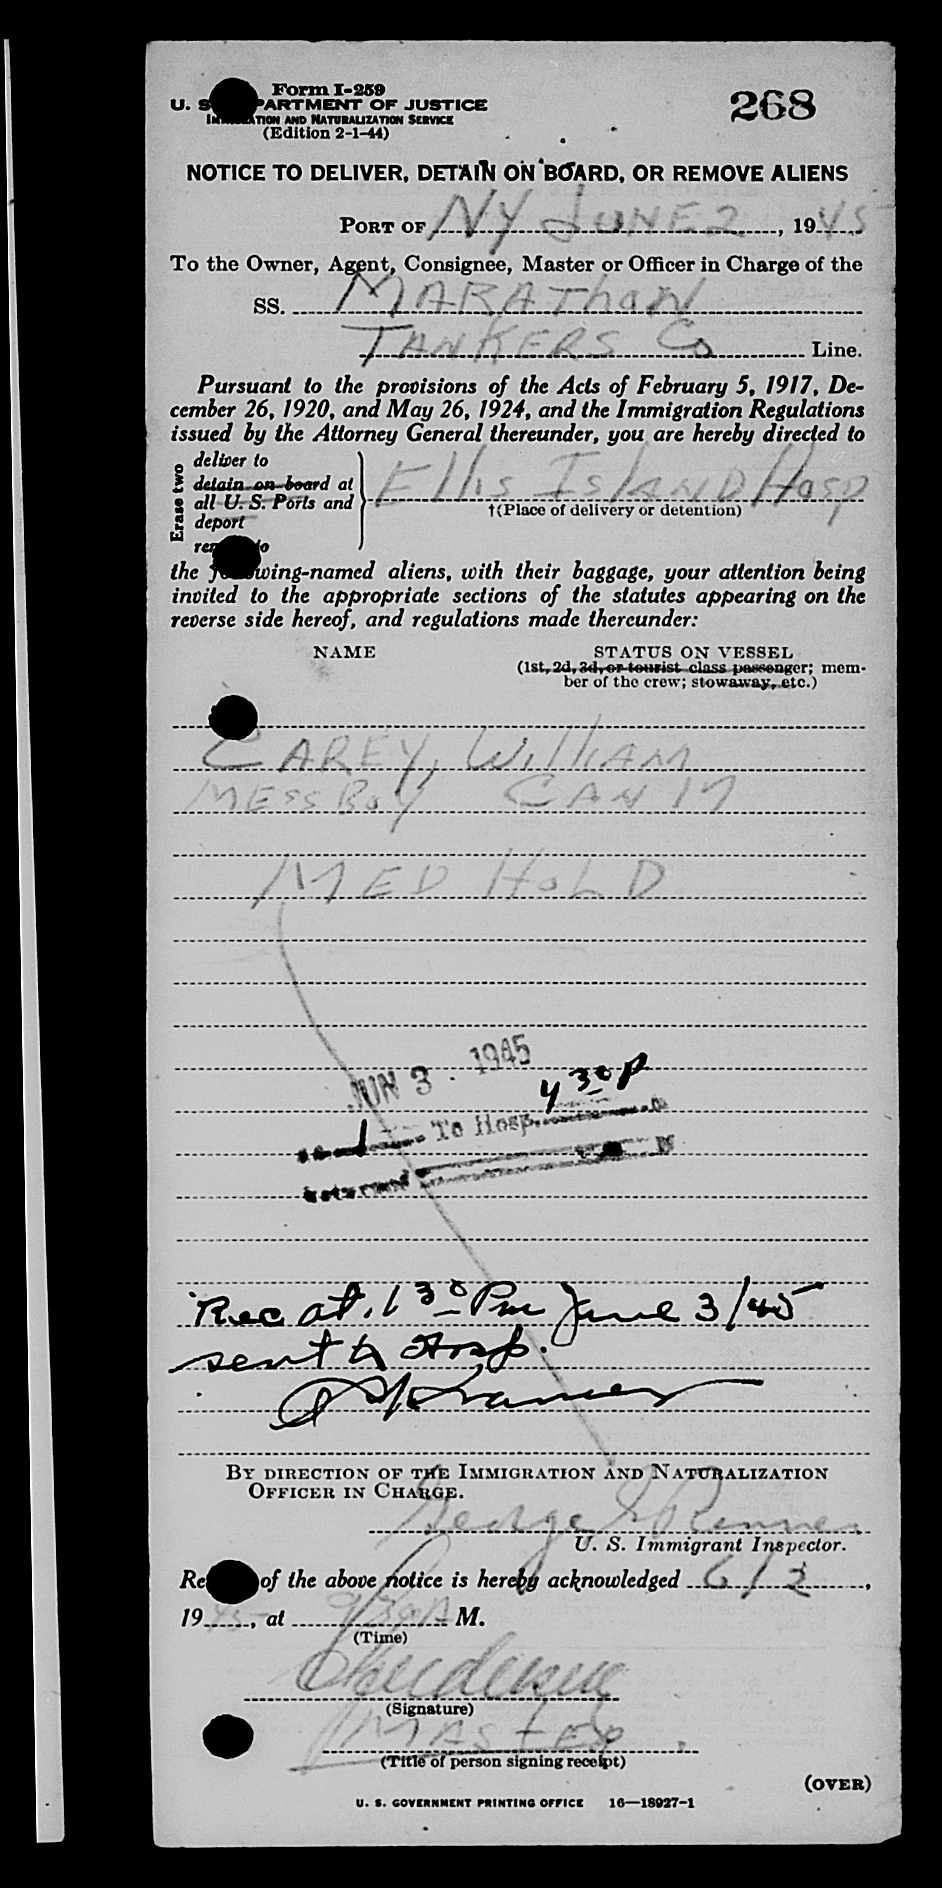 Form I-259
268
U. S. DEPARTMENT OF JUSTICE
IMMIGRATION AND NATURALIZATION SERVICE
(Edition 2-1-44)
NOTICE TO DELIVER, DETAIN ON BOARD, OR REMOVE ALIENS
PORT OF NY JUNE 2, 1945
To the Owner, Agent, Consignee, Master or Officer in Charge of the
SS. MARAThoN
TANKERS Co Line.
Pursuant to the provisions of the Acts of February 5, 1917, De-
cember 26, 1920, and May 26, 1924, and the Immigration Regulations
issued by the Attorney General thereunder, you are hereby directed to
Erase two
deliver to
detain on board at
all U. S. Ports and
deport
remove to
Ellis IslAND Hosp
†(Place of delivery or detention)
the following-named aliens, with their baggage, your attention being
invited to the appropriate sections of the statutes appearing on the
reverse side hereof, and regulations made thereunder:
NAME STATUS ON VESSEL
(1st, 2d, 3d, or tourist class passenger; mem-
ber of the crew; stowaway, etc.)
CAREY, William
MESS BoY CAN 17
MED HOLD
JUN 3 - 1945
4 30 P
1 To Hosp.
Returned
Rec at 1 30 Pm June 3/45
sent to Hosp.
Kramer
BY DIRECTION OF THE IMMIGRATION AND NATURALIZATION
OFFICER IN CHARGE.
George
U. S. Immigrant Inspector.
Receipt of the above notice is hereby acknowledged 6/2,
1945, at M.
(Time)
(Signature)
MASTER
(Title of person signing receipt)
(OVER)
U. S. GOVERNMENT PRINTING OFFICE 16—18927-1